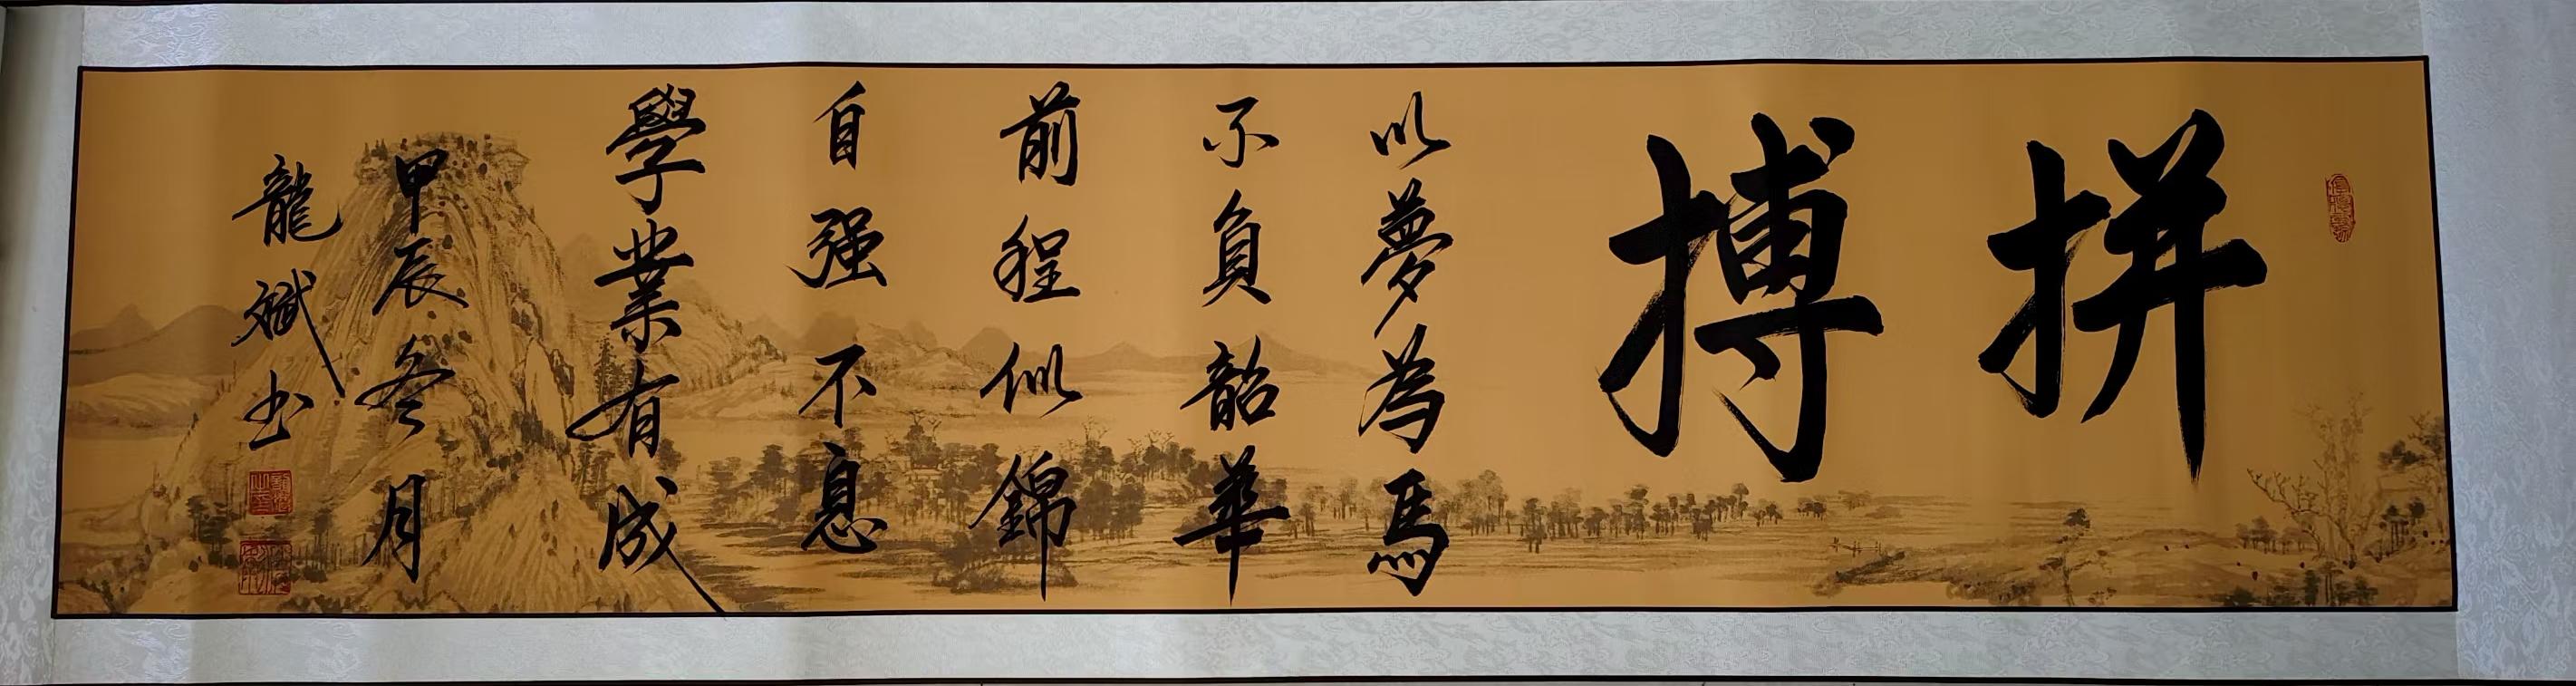 拼搏
以夢為馬
不負韶華
前程似錦
自强不息
學業有成
甲辰冬月
龍斌书